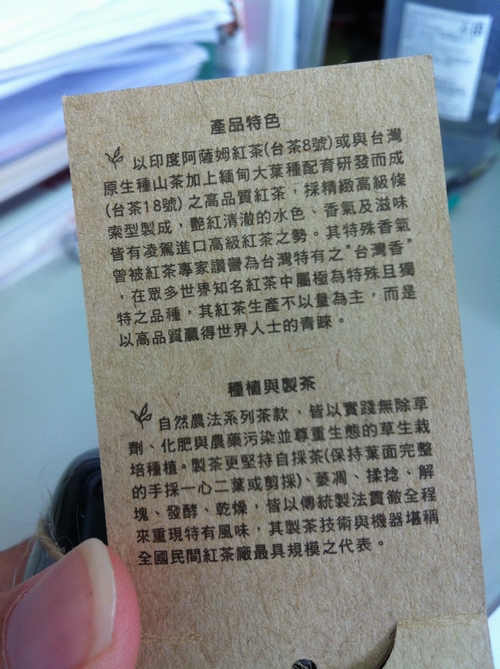 產品特色
以印度阿薩姆紅茶(台茶8號)或與台灣
原生種山茶加上緬甸大葉種配育研發而成
(台茶18號) 之高品質紅茶,採精緻高級條
索型製成,艷紅清澈的水色、香氣及滋味
皆有凌駕進口高級紅茶之勢。其特殊香氣
曾被紅茶專家讚譽為台灣特有之"台灣香"
,在眾多世界知名紅茶中屬極為特殊且獨
特之品種,其紅茶生產不以量為主,而是
以高品質贏得世界人士的青睞。
種植與製茶
自然農法系列茶款,皆以實踐無除草
劑、化肥與農藥污染並尊重生態的草生栽
培種植。製茶更堅持自採茶(保持葉面完整
的手採一心二葉或剪採)、萎凋、揉捻、解
塊、發酵、乾燥,皆以傳統製法貫徹全程
來重現特有風味,其製茶技術與機器堪稱
全國民間紅茶廠最具規模之代表。